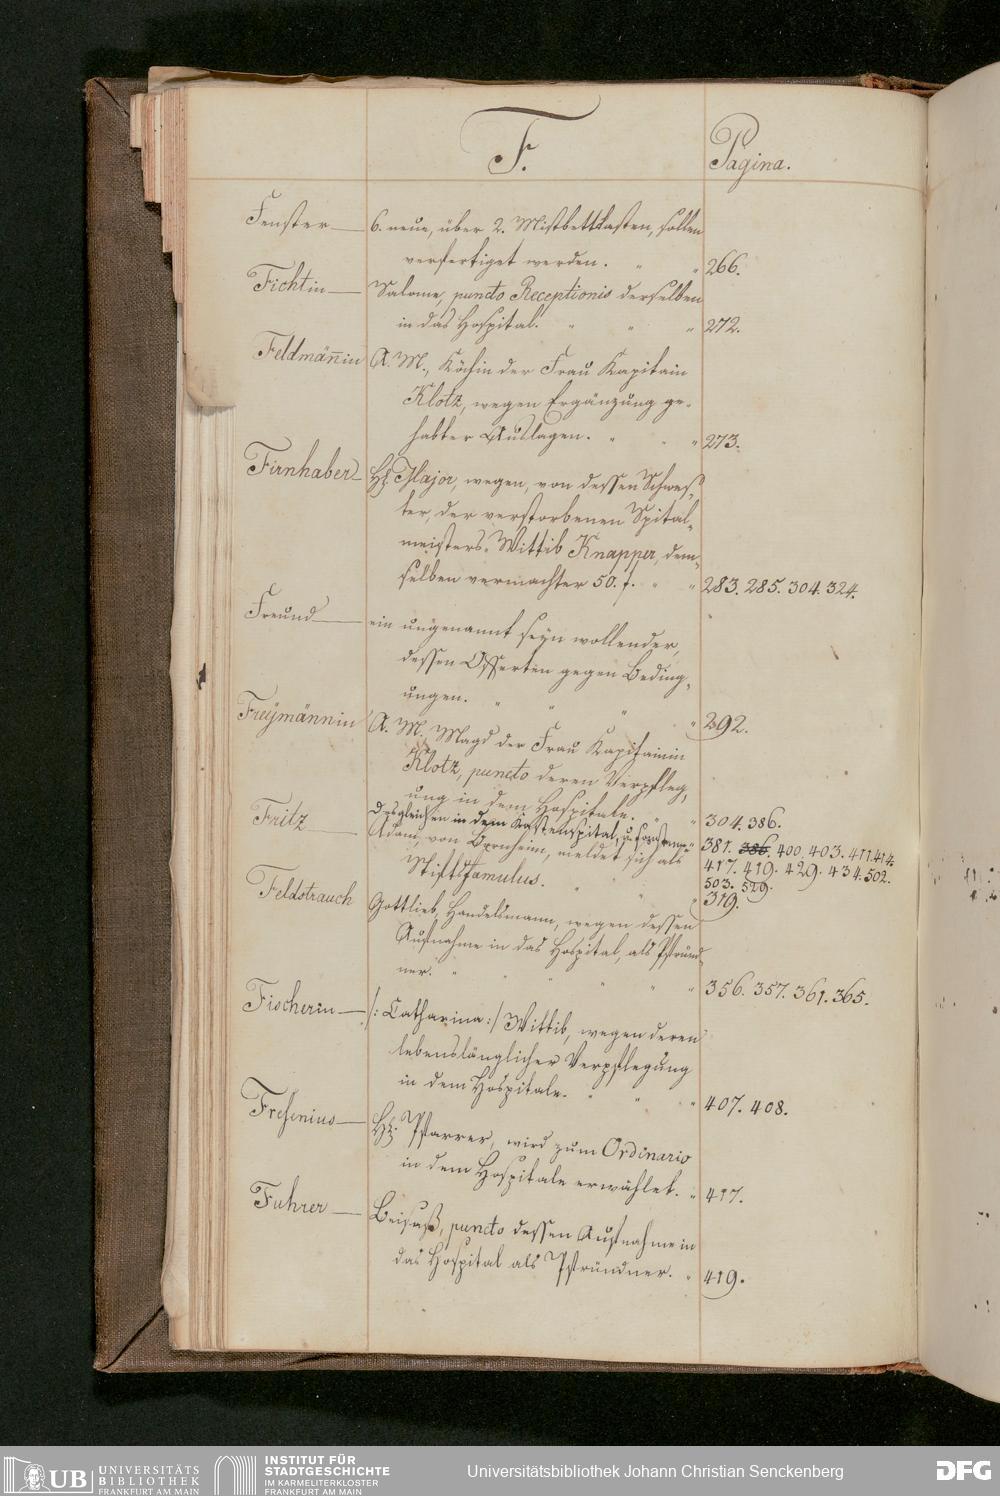 F.
Pagina.
Fenster — 6. neue, über 2. Mistbettkasten, sollen
verfertiget werden. " " 266.
Fichtin — Salome, puncto Receptionis derselben
in das Hospital. " " " 272.
Feldmän̄in A. M., Köchin der Frau Kapitain
Klotz, wegen Ergänzung ge-
habter Auslagen. " " " 273.
Firnhaber — H. Major, wegen, von dessen Schwes-
ter, der verstorbenen Spital-
meisters-Wittib Knapper, dem-
selben vermachter 50. f. " " 283. 285. 304. 324.
Freund — ein ungenannt seyn wollender,
dessen Offerten gegen Beding-
ungen. " " " " 292.
Freÿmännin A. M. Magd der Frau Kapitainin
Klotz, puncto deren Verpfleg-
ung in dem Hospitale. " " 304. 386.
Desgleichen in dem Kastenspital, u. 381. 386. 400. 403. 411. 414.
417. 419. 429. 434. 502.
503. 529.
Fritz — Adam, von Bornheim, meldet sich als
Stiftsfamulus. " " " 319.
Feldstrauch Gottlieb, Handelsmann, wegen dessen
Aufnahme in das Hospital, als Pfründ-
ner. " " " " " 356. 357. 361. 365.
Fischerin — /: Catharina :/ Wittib, wegen deren
lebenslänglicher Verpflegung
in dem Hospitale. " " " 407. 408.
Fresenius — H. Pfarrer, wird zum Ordinario
in dem Hospitale erwählet. " 417.
Fuhrer — Beisaß, puncto dessen Aufnahme in
das Hospital als Pfründner. " 419.
UB UNIVERSITÄTS
BIBLIOTHEK
FRANKFURT AM MAIN
INSTITUT FÜR
STADTGESCHICHTE
IM KARMELITERKLOSTER
FRANKFURT AM MAIN
Universitätsbibliothek Johann Christian Senckenberg
DFG